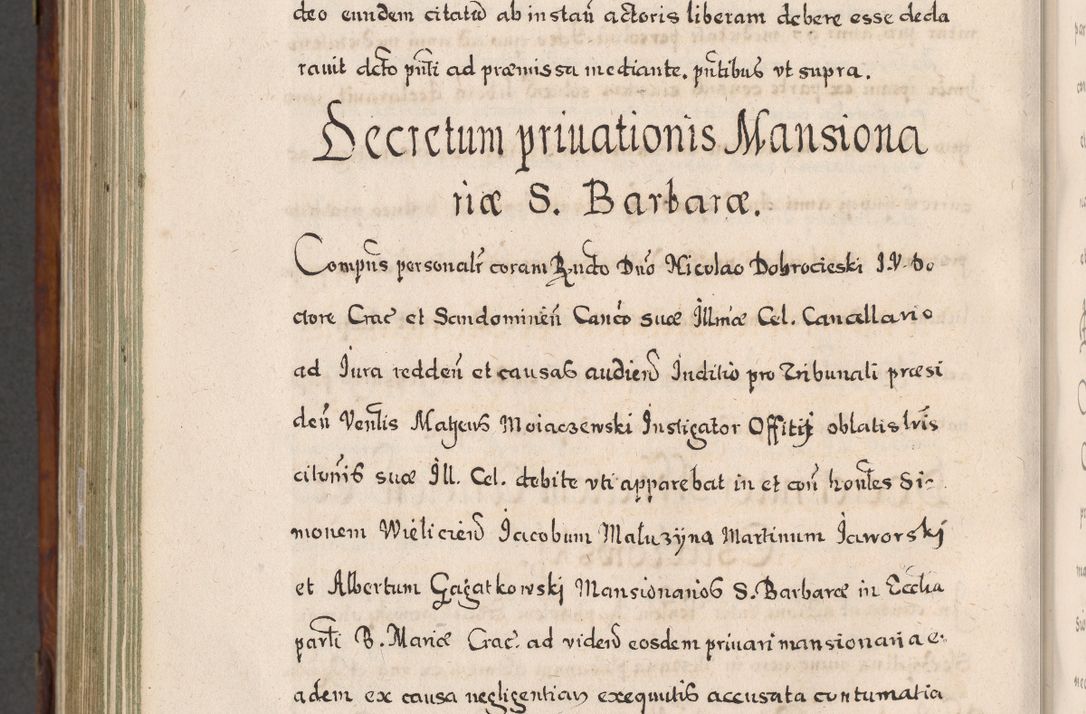 deo eundem citatū ab instañ actoris liberam debere esse decla
rauit dcto pñti ad præmissa mediante. pñtibus vt supra.
Decretum priuationis Mansiona
riæ S. Barbaræ.
Compñs personalr coram Rndo Dno Nicolao Dobrocieski I.V. Do
ctore Crac et Sandomineñ Canco suæ Illmæ Cel. Cancellario
ad Iura reddeñ et causas audiend Inditio pro Tribunali præsi
deñ Venlis Matheus Moiaczewski Instigator Offitij oblatis lris
citonis suæ Ill. Cel. debite vti apparebat in et coñ honles Si-
monem Wieliciend Iacobum Maluzyna Martinum Iaworskj
et Albertum Gagatkowskj Mansionarios S. Barbaræ in Ecclia
parli B. Mariæ Crac. ad videnđ eosdem priuari mansionaria e-
adem ex causa negligentiarum exequutis accusata contumatia